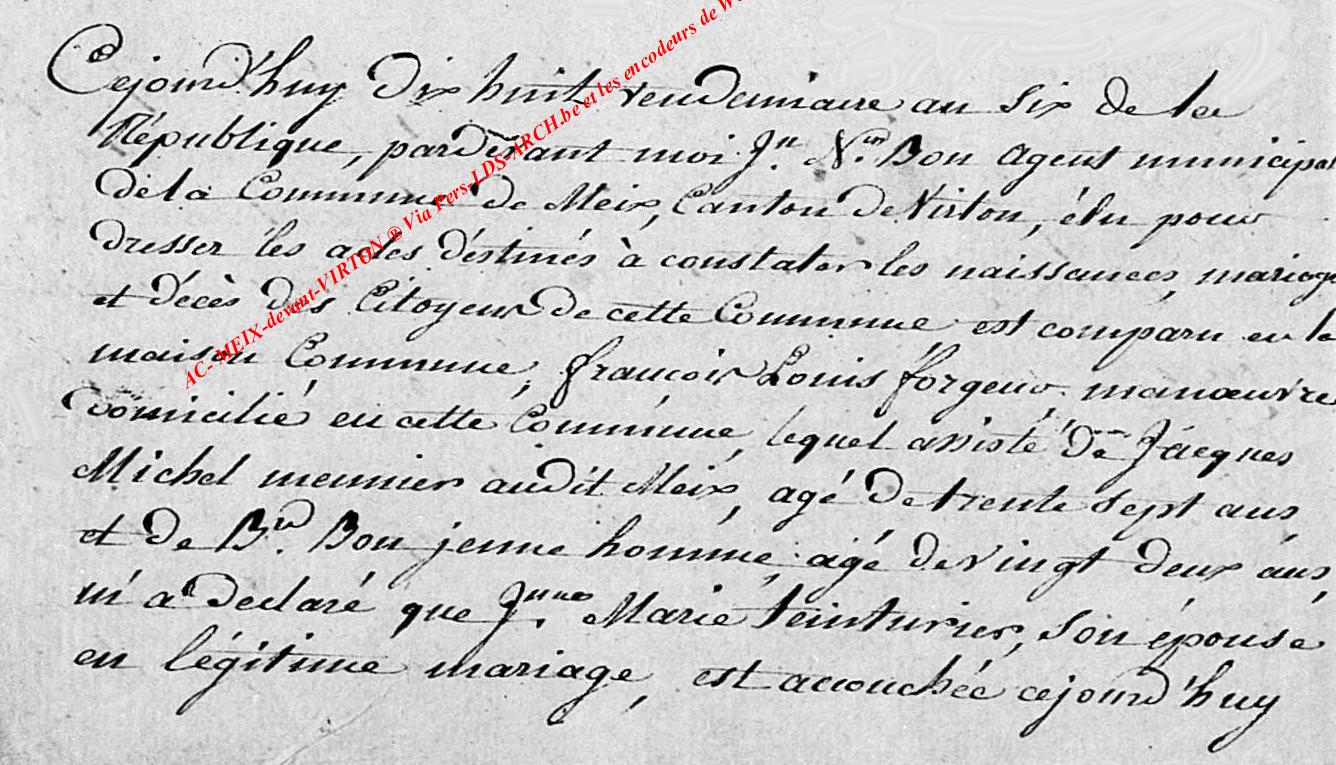 Cejourd'huy dix huit vendemiaire an six de la
République, pardevant moi Jn. Nas. Bon agent municipal
de la Commune de Meix, Canton de Virton, élu pour
dresser les actes déstinés à constater les naissances, mariage
et décès des Citoyens de cette Commune, est comparu en la
maison Commune, françois Louis forgeur manœuvre
domicilié en cette Commune, lequel assisté de Jacques
Michel meunier audit Meix, agé de trente sept ans,
et de Bd. Bon jeune homme, agé de vingt deux ans,
m'a declaré que Jnne. Marie teinturier, son épouse
en légitime mariage, est accouchée cejourd'huy
AC-MEIX-devant-VIRTON ® Via Pers-LDS-ARCH.be et les encodeurs de